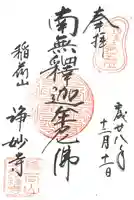 奉拝
平成廿八年
十二月十一日
南無釋迦牟尼佛
稲荷山
浄妙寺